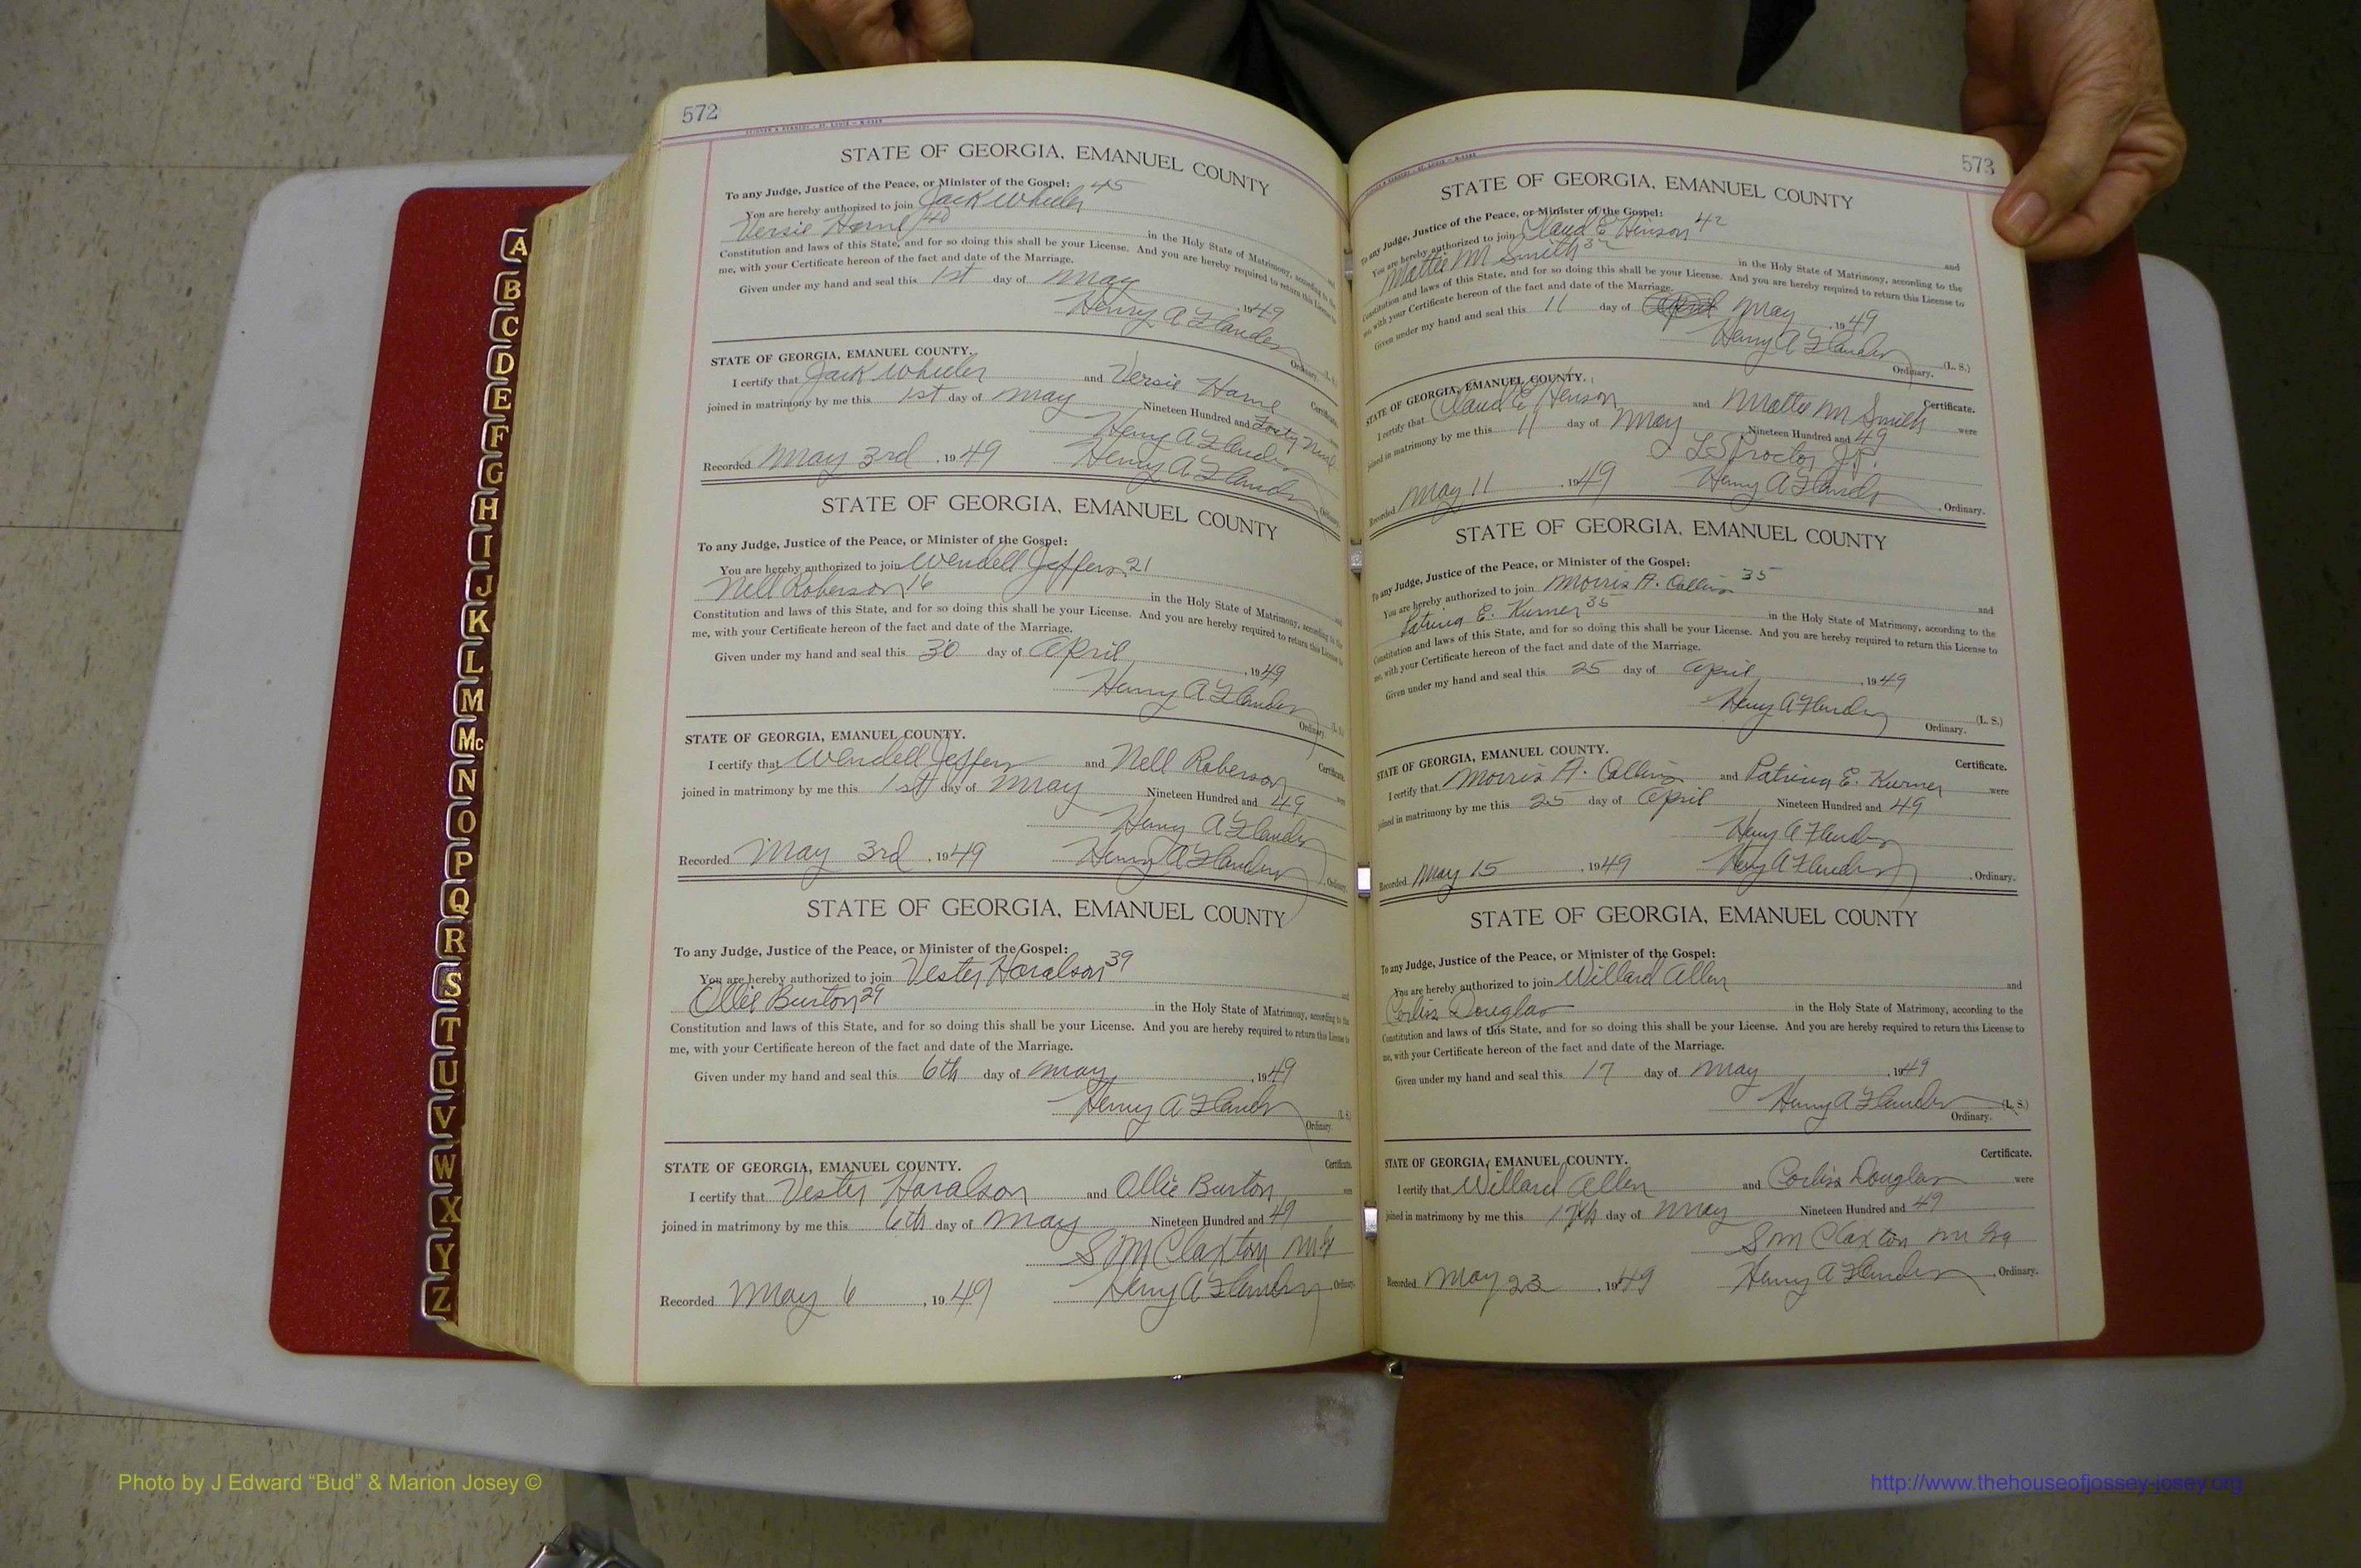 572
STATE OF GEORGIA, EMANUEL COUNTY
To any Judge, Justice of the Peace, or Minister of the Gospel:
You are hereby authorized to join Jack Wheeler 45
Versie Hame 40 in the Holy State of Matrimony, according to the
Constitution and laws of this State, and for so doing this shall be your License. And you are hereby required to return this License to
me, with your Certificate hereon of the fact and date of the Marriage.
Given under my hand and seal this 1st day of May, 1949
Henry A Flanders (L. S.)
Ordinary.
STATE OF GEORGIA, EMANUEL COUNTY.
Certificate.
I certify that Jack Wheeler and Versie Hame
joined in matrimony by me this 1st day of May Nineteen Hundred and Forty Nine
Henry A Flanders
Recorded May 3rd, 1949 Henry A Flanders, Ordinary.
STATE OF GEORGIA, EMANUEL COUNTY
To any Judge, Justice of the Peace, or Minister of the Gospel:
You are hereby authorized to join Wendell Jefferson 21
Nell Roberson 16 in the Holy State of Matrimony, according to the
Constitution and laws of this State, and for so doing this shall be your License. And you are hereby required to return this License to
me, with your Certificate hereon of the fact and date of the Marriage.
Given under my hand and seal this 30 day of April, 1949
Henry A Flanders (L. S.)
Ordinary.
STATE OF GEORGIA, EMANUEL COUNTY.
Certificate.
I certify that Wendell Jefferson and Nell Roberson were
joined in matrimony by me this 1st day of May Nineteen Hundred and 49
Henry A Flanders
Recorded May 3rd, 1949 Henry A Flanders, Ordinary.
STATE OF GEORGIA, EMANUEL COUNTY
To any Judge, Justice of the Peace, or Minister of the Gospel:
You are hereby authorized to join Vester Haralson 39 and
Ollie Burton 29 in the Holy State of Matrimony, according to the
Constitution and laws of this State, and for so doing this shall be your License. And you are hereby required to return this License to
me, with your Certificate hereon of the fact and date of the Marriage.
Given under my hand and seal this 6th day of May, 1949
Henry A Flanders (L. S.)
Ordinary.
STATE OF GEORGIA, EMANUEL COUNTY. Certificate.
I certify that Vester Haralson and Ollie Burton were
joined in matrimony by me this 6th day of May Nineteen Hundred and 49
S M Claxton
Recorded May 6, 1949 Henry A Flanders, Ordinary.
573
STATE OF GEORGIA, EMANUEL COUNTY
To any Judge, Justice of the Peace, or Minister of the Gospel:
You are hereby authorized to join Claud E Hinson 42 and
Mattie M Smith in the Holy State of Matrimony, according to the
Constitution and laws of this State, and for so doing this shall be your License. And you are hereby required to return this License to
me, with your Certificate hereon of the fact and date of the Marriage.
Given under my hand and seal this 11 day of May, 1949
Henry A Flanders (L. S.)
Ordinary.
STATE OF GEORGIA, EMANUEL COUNTY. Certificate.
I certify that Claud E Henson and Mattie M Smith were
joined in matrimony by me this 11 day of May Nineteen Hundred and 49
L S Proctor J.P.
Recorded May 11, 1949 Henry A Flanders, Ordinary.
STATE OF GEORGIA, EMANUEL COUNTY
To any Judge, Justice of the Peace, or Minister of the Gospel:
You are hereby authorized to join Morris A. Collins 35 and
E. Kurner 35 in the Holy State of Matrimony, according to the
Constitution and laws of this State, and for so doing this shall be your License. And you are hereby required to return this License to
me, with your Certificate hereon of the fact and date of the Marriage.
Given under my hand and seal this 25 day of April, 1949
Henry A Flanders (L. S.)
Ordinary.
STATE OF GEORGIA, EMANUEL COUNTY. Certificate.
I certify that Morris A. Collins and E. Kurner were
joined in matrimony by me this 25 day of April Nineteen Hundred and 49
Henry A Flanders
Recorded May 15, 1949 Henry A Flanders, Ordinary.
STATE OF GEORGIA, EMANUEL COUNTY
To any Judge, Justice of the Peace, or Minister of the Gospel:
You are hereby authorized to join Willard Allen and
Corliss Douglas in the Holy State of Matrimony, according to the
Constitution and laws of this State, and for so doing this shall be your License. And you are hereby required to return this License to
me, with your Certificate hereon of the fact and date of the Marriage.
Given under my hand and seal this 17 day of May, 1949
Henry A Flanders (L. S.)
Ordinary.
STATE OF GEORGIA, EMANUEL COUNTY. Certificate.
I certify that Willard Allen and Corliss Douglas were
joined in matrimony by me this 17th day of May Nineteen Hundred and 49
S M Claxton
Recorded May 23, 1949 Henry A Flanders, Ordinary.
A
B
C
D
E
F
G
H
I
J
K
L
M
Mc
N
O
P
Q
R
S
T
U
V
W
X
Y
Z
Photo by J Edward “Bud” & Marion Josey ©
http://www.thehouseofjossey-josey.org